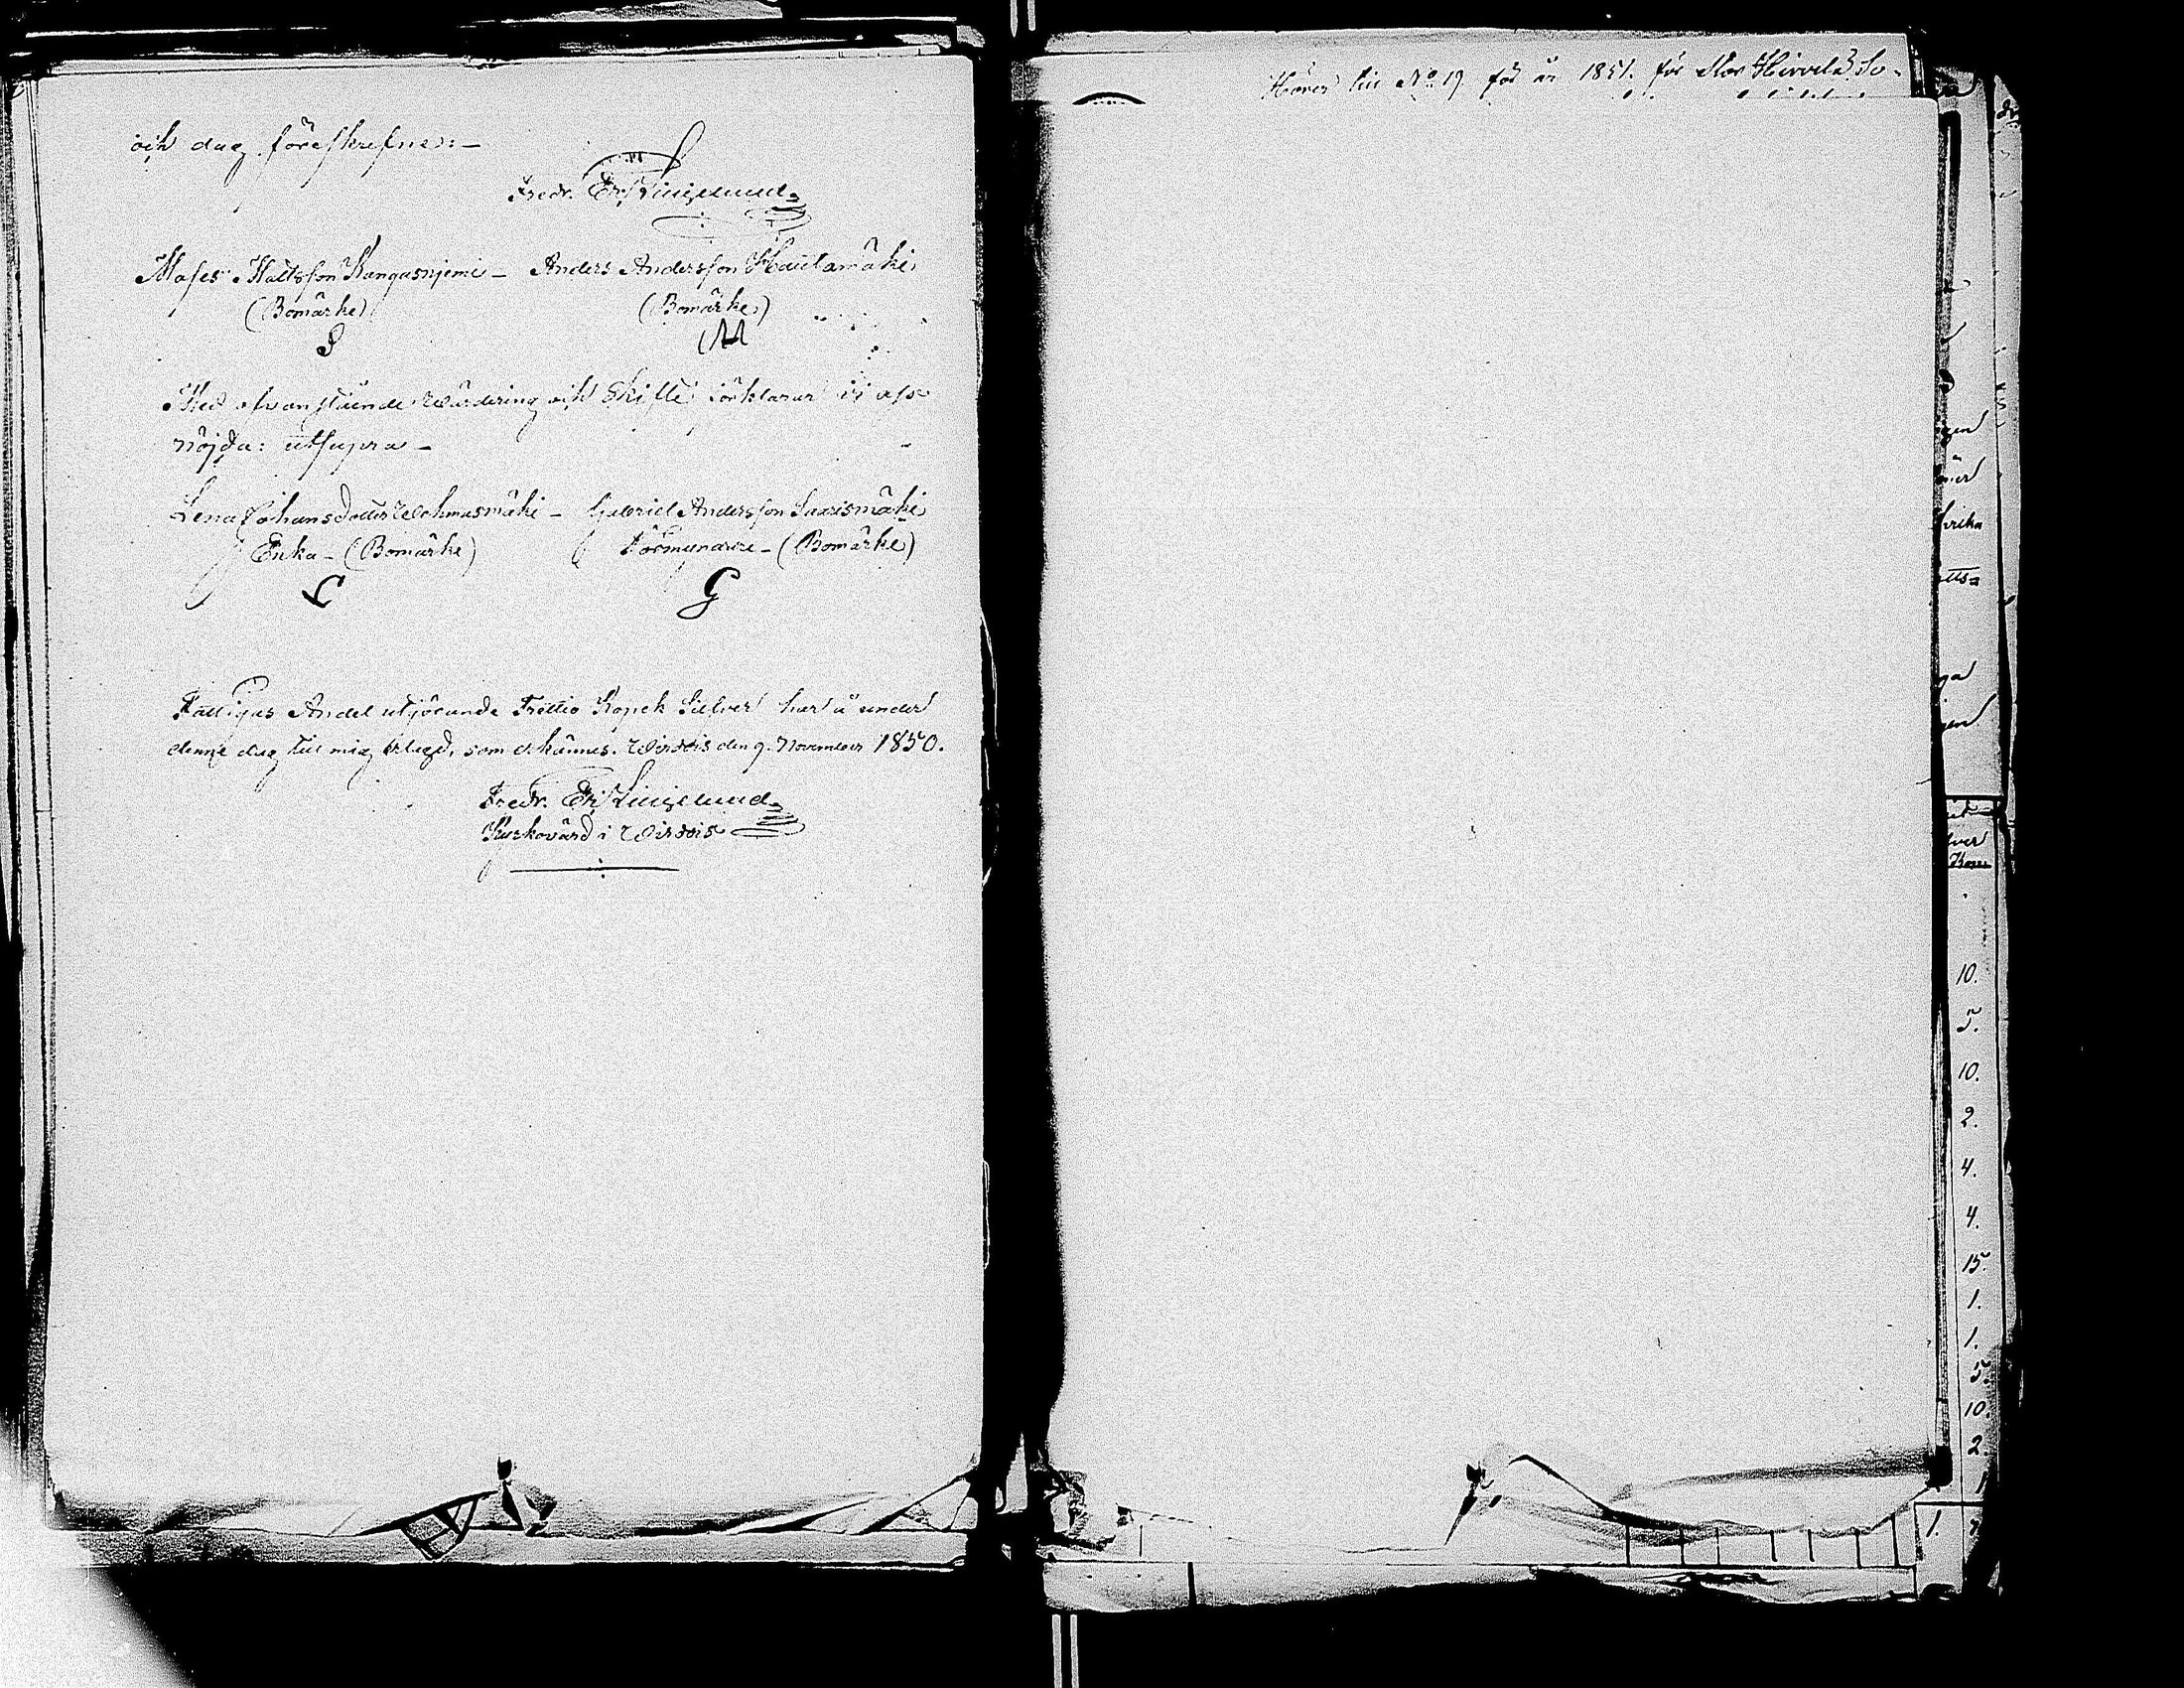 och dag föreskrefne:-
Fredr. Er. Ljungelund
Moses Mattsson Kangasnjemi - Anders Andersson Hautamäki
(Bomärke) (Bomärke)
M
Med ofvanstående Wärdering och Skifte förklarar vi oss
nöjda: utsupra -
Lena Johansdotter Wehmasmäki - Gabriel Andersson Saarismäki
Enka - (Bomärke) Förmyndare - (Bomärke)
L G
Fattigas Andel utgörande Trettio Kopek Silfver har å under
denne dag till mig erlagd, som erkännes. Wirdois den 9. November 1850.
Fredr. Er. Ljungelund
Kyrkovärd i Wirdois
Hörer till No 19 för år 1851. för Stor Hirvelä So-
gen
rika
ga
gen
lver
10.
5.
10.
2.
4.
4.
15.
1.
1.
5.
10.
2.
1.